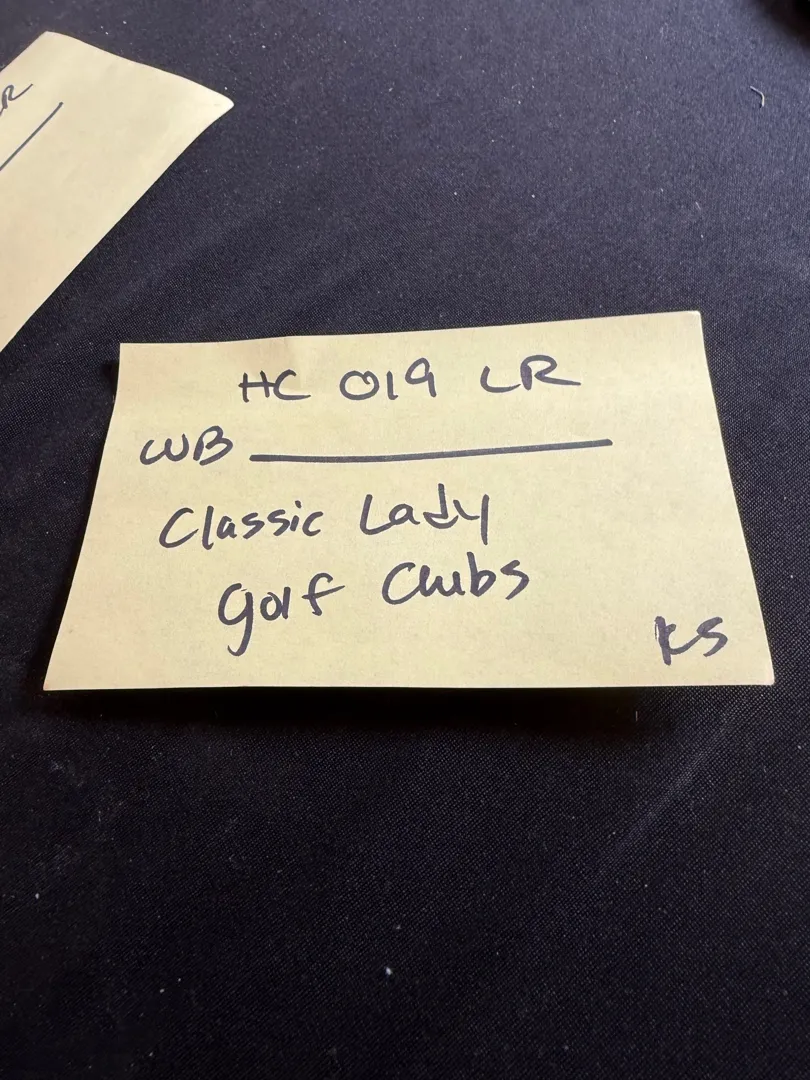 HC 019 LR
WB
Classic Lady
Golf Clubs
KS